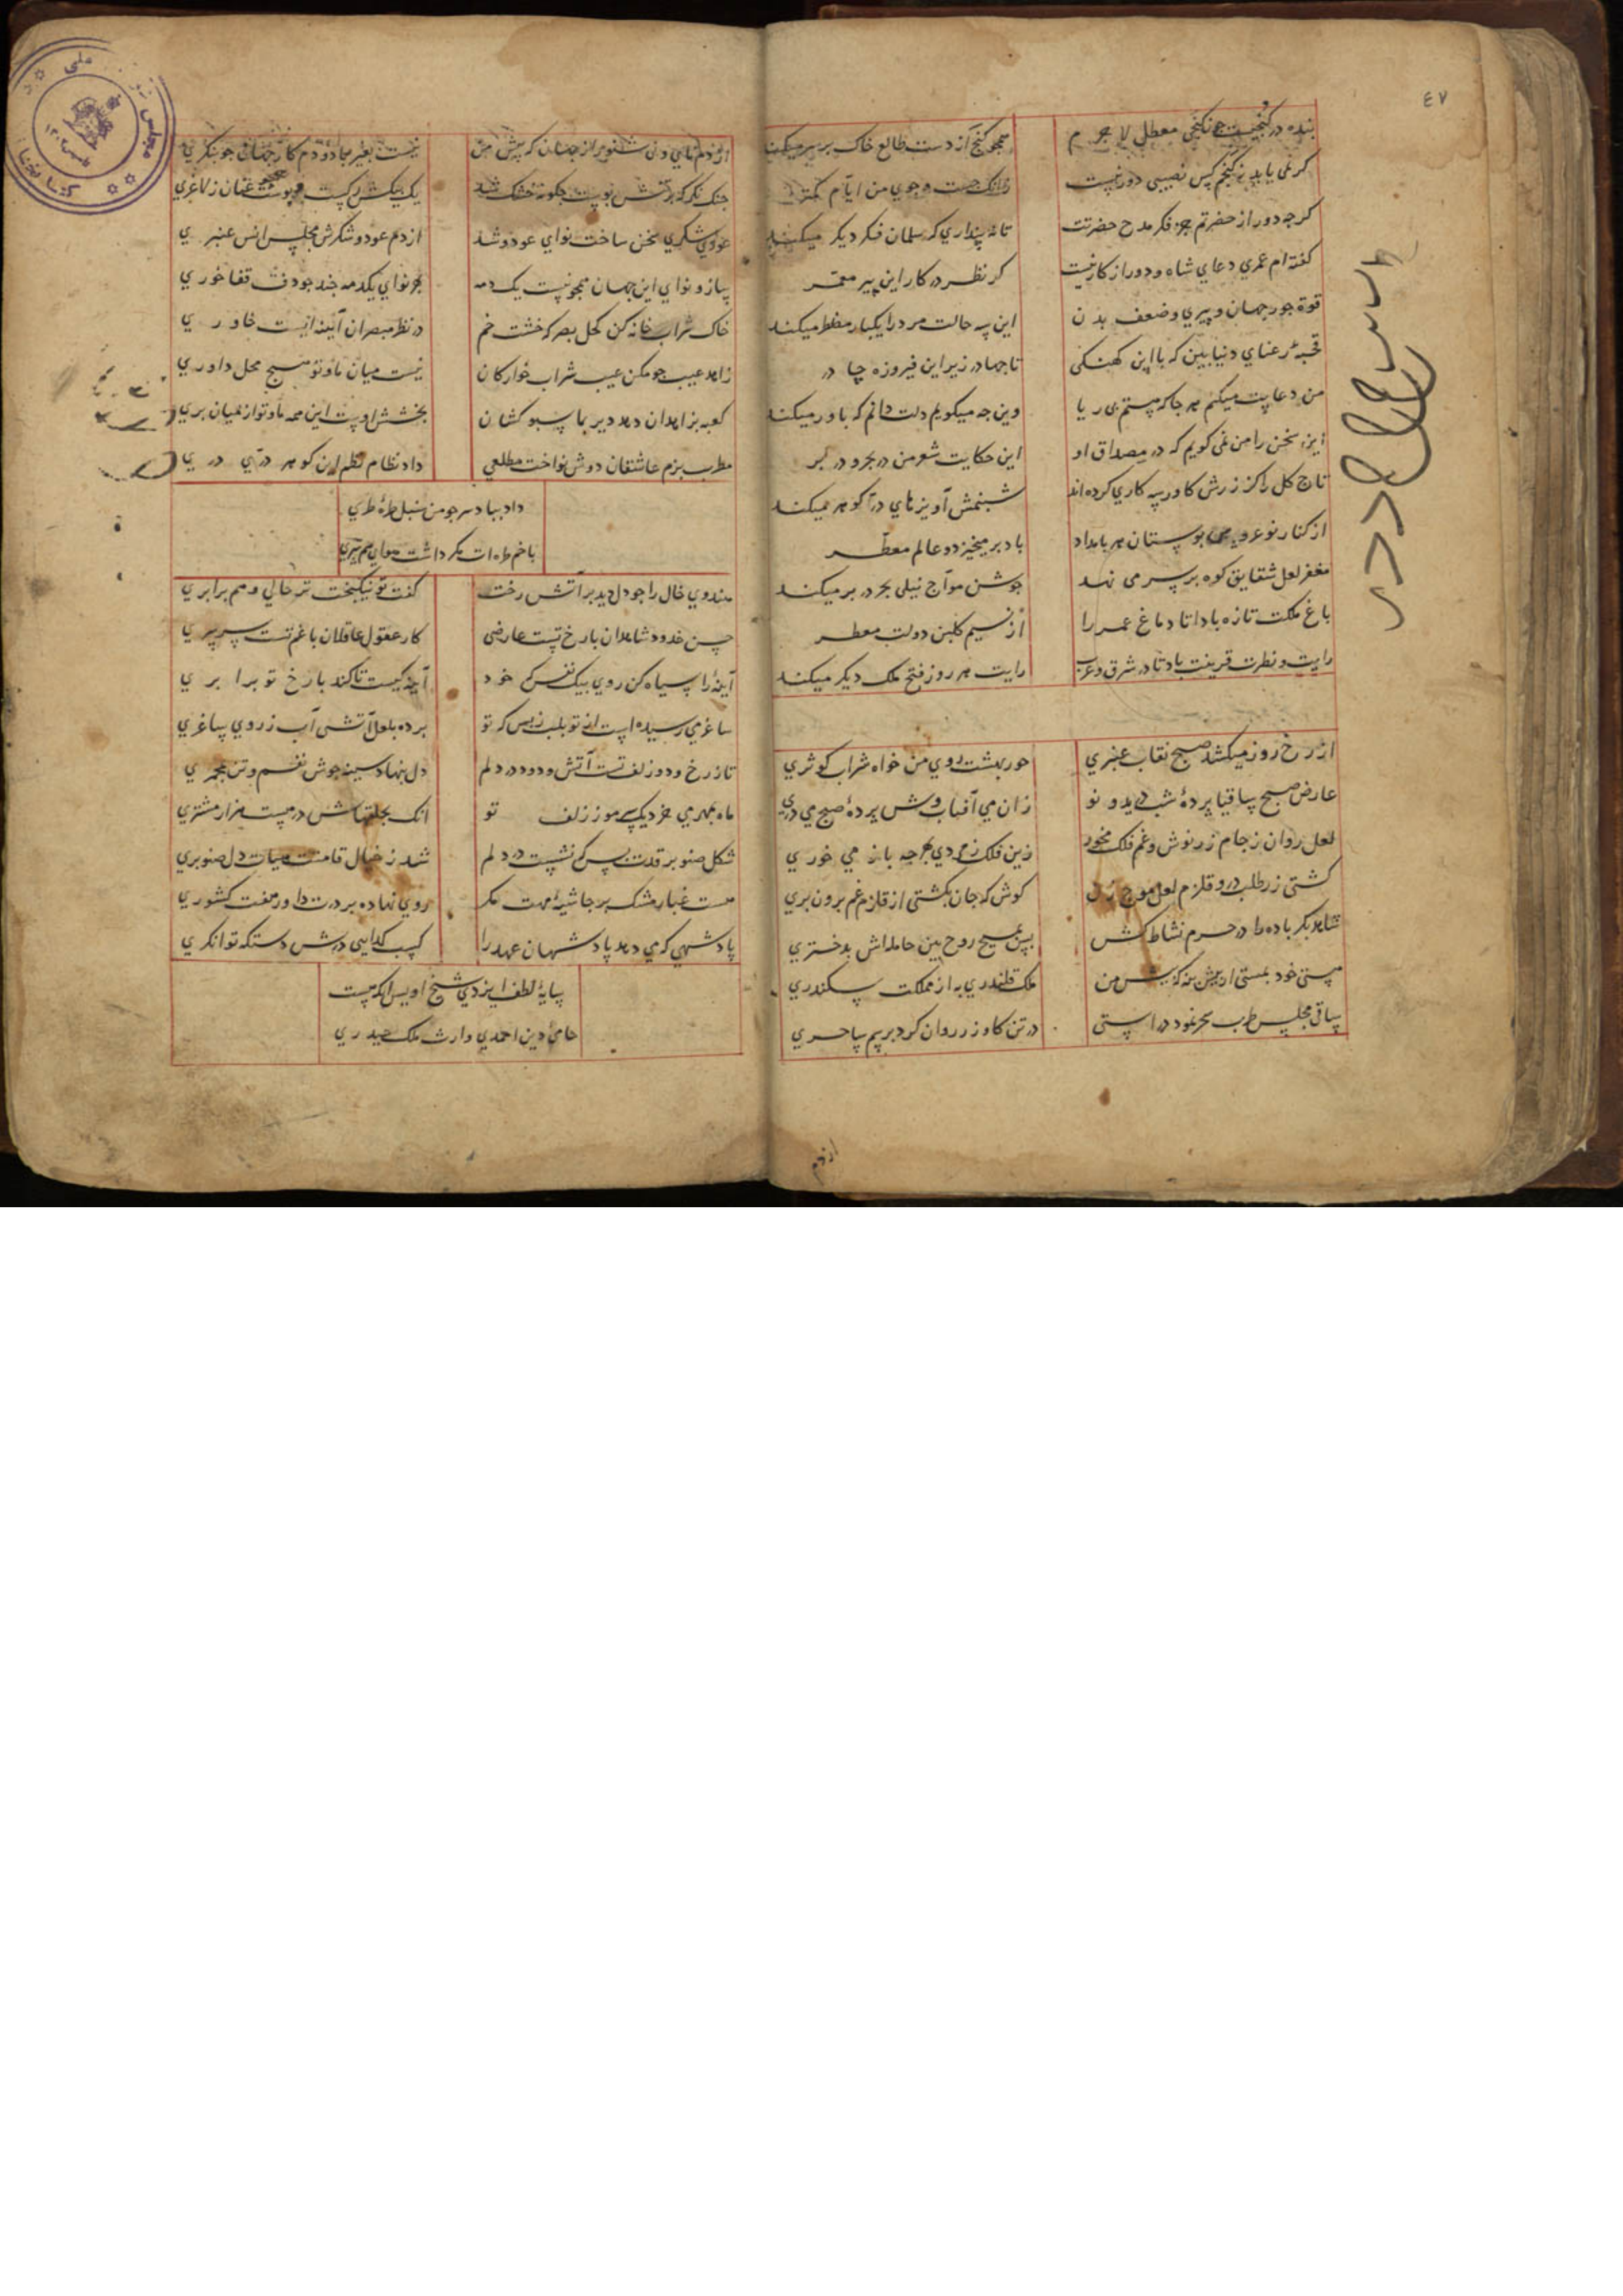 ٤٧
بنده در کنجیست چون کنجی معطل لا جرم
همچو کنج از دست طالع خاک بر سر میکند
کر نمی یابد ز کنجم کس نصیبی دور نیست
زانک جست و جوی من ایام کمتر
کرچه دور از حضرتم جز فکر مدح حضرتت
تا نه پنداری که سلمان فکر دیکر میکند
کفته ام عمری دعای شاه و دور از کار نیست
کر نظر در کار این پیر معمر
قوة جور جهان و پیری و ضعف بدن
این سه حالت مرد را یکبار مضطر میکند
قحبه رعنای دنیا بین که با این کهنکی
تا جها در زیر این فیروزه چادر
من دعایت میکنم هر جا که هستم بی ریا
وین چه میکویم دلت دانم که باور میکند
این سخن را من نمی کویم که در مصداق او
این حکایت شعر من در بحر و در بر
تاج کل را کز زرش کاورسه کاری کرده اند
شبنمش آویزهای در آکوهر میکند
از کنار نوعروس بوستان هر بامداد
باد بر میخیزد و عالم معطر
مغفر لعل شقایق کوه بر سر می نهد
جوشن مواج نیلی بحر در بر میکند
باغ ملکت تازه بادا تا دماغ عمر را
از نسیم کلبن دولت معطر
رایت و نطرت قرینت باد تا در شرق و غرب
رایت هر روز فتح ملک دیکر میکند
از رخ روز میکشد صبح نقاب عنبری
حور بهشت روی من خواه شراب کوثری
عارض صبح ساقیا پرده شب درید و تو
زان می آفتاب وش پرده صبح می دری
لعل روان ز جام زر نوش و غم فلک مخور
زین فلک زمردی بهر چه باز می خوری
کشتی زر طلب در و قلزم لعل موج زن
کوش که جان بکشتی از قلزم غم برون بری
شاهد بکر باده را در حرم نشاط کش
بین مسیح روح بین حامله اش بدختری
مستی خود بمستی ار پیش نه که پیش من
ملک قلندری به از مملکت سکندری
ساقی مجلس طرب سحر نمود در استی
در تن کاو زر روان کرد بریم ساحری
از دم
از دم نای و نی شنو راز جهان که پیش من
نیست بغیر باد و دم کار جهان چو بنکری
چنک نکر که بر تنش پوست چکونه خشک شد
یک بیکش رک است و پوست عیان ز لاغری
عودی شکری سخن ساخت نوای عود و شد
از دم عود و شکرش مجلس انس عنبری
ساز و نوای این جهان همچو نیست یک دمه
بهر نوای یکدمه چند چو دف قفا خوری
خاک شراب خانه کن کحل بصر که خشت خم
در نظر مبصران آینه ایست خاوری
زاهد عیب جو مکن عیب شراب خوارکان
نیست میان ما و تو هیچ محل داوری
کعبه بزاهدان دهد دیر بما سبو کشان
بخشش اوست این همه ما و تو از میان بری
مطرب بزم عاشقان دوش نواخت مطلعی
داد نظام نظم از کوهر در دری
داد بباد سر چو من سنبل طره طری
با خم طره ات مکر داشت هوای هم سری
هندوی خال را چو دل دید بر آتش رخت
کفت تو نیکبخت تر حالی و هم برابری
حسن خدود شاهدان با رخ تست عارضی
کار عقول عاقلان با غم تست سرسری
آینه را سیاه کن روی بیک نفس که خود
آینه کیست تا کند با رخ تو برابری
ساغر می رسیده است از تو بلب ز بس که تو
برده بلعل آتشی آب ز روی ساغری
تا ز رخ و دو زلف تست آتش و دود در دلم
دل بنهاد سینه جوش نفسم و تن مجمری
ماه بمهری خرد یک سر مو ز زلف تو
انک بحلقهاش در هست هزار مشتری
شکل صنوبر قدت بس که نشست در دلم
شد ز خیال قامتت هیات دل صنوبری
هست غبار مشک بر حاشیه مهت مکر
روی نهاده بر درت داور هفت کشوری
پادشهی که می دهد پادشهان عهد را
کسب کدایی درش دستکه توانکری
سایه لطف ایزدی شیخ اویس انکه هست
حامی دین احمدی وارث ملک حیدری